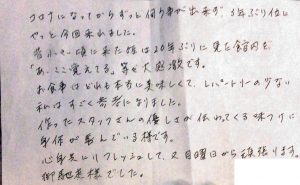 コロナになってからずっと伺う事が出来ず、3年ぶり位に
やっと今回来れました。
昔小さい頃に来た娘は20年ぶりに見た館内を
「あ、ここ覚えてる」等と大感激です。
お食事はどれも本当に美味しくて、レパートリーの少ない
私はすごく参考になりました。
作ったスタッフさんの優しさが伝わってくる味つけに
身体が喜んでいる様です。
心身共にリフレッシュして、又月曜日から頑張ります。
御馳走様でした。